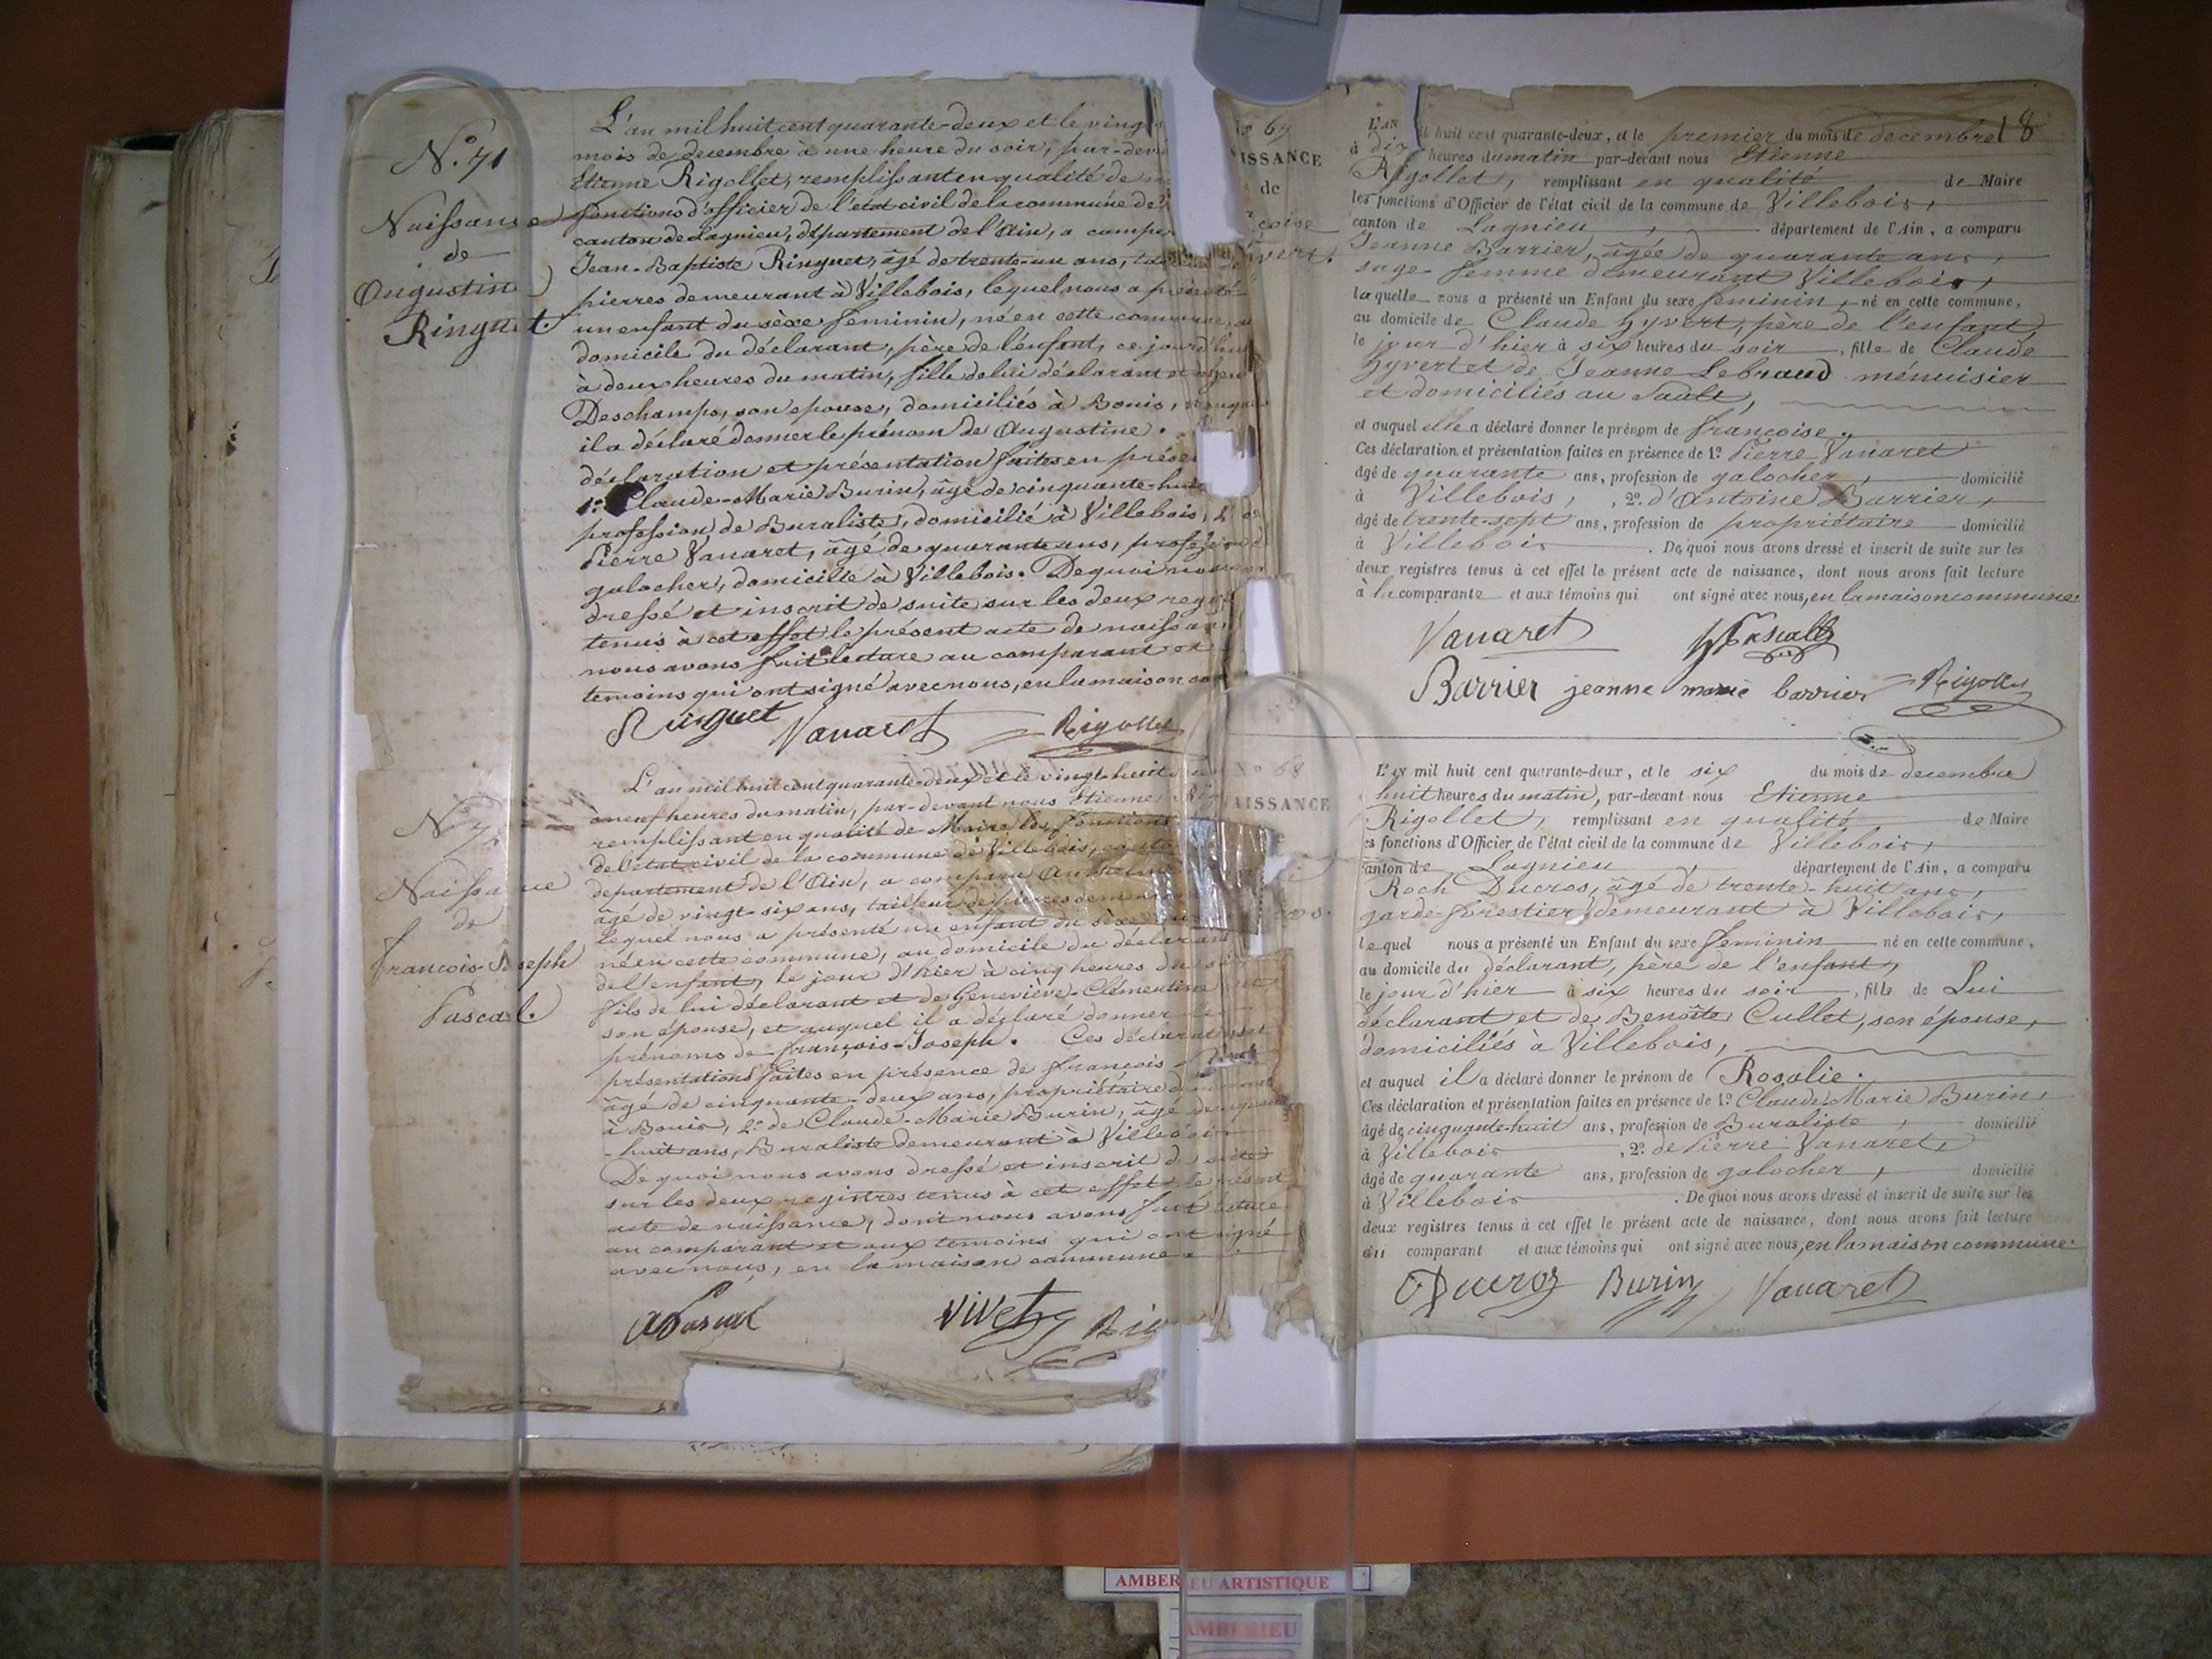 N.° 71
Naissance
de
Augustine
Ringuet.
L'an mil huit cent quarante-deux et le
mois de decembre à une heure du soir, par-dev
Etienne Rigollet, remplissant en qualité de
fonctions d'officier de l'etat civil de la commune de
canton de Lagnieu, département de l'Ain, a compa
Jean-Baptiste Ringuet, âgé de trente-un ans,
pierres demeurant à Villebois, lequel nous a présenté
un enfant du sèxe feminin, né en cette commune, au
domicile du déclarant, père de l'enfant, ce jourd'hui
à deux heures du matin, fille de lui déclarant et
Deschamps, son epouse, domiciliés à Bouis,
il a déclaré donner le prénom de Augustine.
déclaration et présentation faites en présen
1.° Claude-Marie Burin, âgé de cinquante-huit
profession de Buraliste, domicilié à Villebois, 2.° de
Pierre Vanaret, âgé de quarante ans, profession d
galocher, domicilié à Villebois. De quoi nous
dressé et inscrit de suite sur les deux regi
tenus à cet effet le présent acte de naissan
nous avons fait lecture au comparant et
temoins qui ont signé avec nous, en la maison com
Ringuet Vanaret Rigollet
N.° 72
Naissance
de
François-Joseph
Pascal.
L'an mil huit cent quarante-deux et le vingt-huit
à neuf heures du matin, par-devant nous Etienne Rig
remplissant en qualité de Maire les fonctions
de l'état civil de la commune de Villebois,
departement de l'Ain, a comparu
âgé de vingt-six ans, tailleur de pierres demeurant
lequel nous a présenté un enfant du sèxe
né en cette commune, au domicile du déclarant
de l'enfant, le jour d'hier à cinq heures du soir
fils de lui déclarant et de Geneviève-Clémentine
son épouse, et auquel il a déclaré donner le
prénoms de François-Joseph. Ces déclaration et
présentations faites en présence de François
âgé de cinquante-deux ans, propriétaire demeurant
à Bouis, 2.° de Claude-Marie Burin, âgé de
-huit ans, Buraliste demeurant à Villebois
De quoi nous avons dressé et inscrit de suite
sur les deux registres tenus à cet effet le présent
acte de naissance, dont nous avons fait lecture
au comparant et aux temoins qui ont signé
avec nous, en la maison commune.
Pascal Vivet Rig
18
N° 69
ISSANCE
de
çoise
yvert.
L'AN il huit cent quarante-deux, et le premier du mois de decembre
à dix heures du matin par-devant nous Etienne
Rigollet, remplissant en qualité de Maire
les fonctions d'Officier de l'état civil de la commune de Villebois,
canton de Lagnieu, département de l'Ain, a comparu
Jeanne Barrier, âgée de quarante ans,
sage-femme demeurant Villebois,
laquelle nous a présenté un Enfant du sexe feminin, né en cette commune,
au domicile de Claude hyvert, père de l'enfant,
le jour d'hier à six heures du soir, fille de Claude
hyvert et de Jeanne Lebraud ménuisier
et domiciliés au Sault,
et auquel elle a déclaré donner le prénom de françoise.
Ces déclaration et présentation faites en présence de 1° Pierre Vanaret
âgé de quarante ans, profession de galocher, domicilié
à Villebois, 2° d'Antoine Barrier,
âgé de trente-sept ans, profession de propriétaire domicilié
à Villebois. De quoi nous avons dressé et inscrit de suite sur les
deux registres tenus à cet effet le présent acte de naissance, dont nous avons fait lecture
à la comparante et aux témoins qui ont signé avec nous, en la maison commune.
Vanaret
Barrier jeanne marie barrier Rigollet
N° 68
NAISSANCE
L'AN mil huit cent quarante-deux, et le six du mois de decembre
huit heures du matin, par-devant nous Etienne
Rigollet, remplissant en qualité de Maire
es fonctions d'Officier de l'état civil de la commune de Villebois,
canton de Lagnieu, département de l'Ain, a comparu
Roch Ducros, âgé de trente-huit ans,
garde-forestier demeurant à Villebois,
lequel nous a présenté un Enfant du sexe feminin né en cette commune,
au domicile du déclarant, père de l'enfant,
le jour d'hier à six heures du soir, fille de Lui
déclarant et de Benoîte Cullet, son épouse,
domiciliés à Villebois,
et auquel il a déclaré donner le prénom de Rosalie.
Ces déclaration et présentation faites en présence de 1° Claude Marie Burin,
âgé de cinquante-huit ans, profession de Buraliste, domicilié
à Villebois, 2° de Pierre Vanaret,
âgé de quarante ans, profession de galocher, domicilié
à Villebois. De quoi nous avons dressé et inscrit de suite sur les
deux registres tenus à cet effet le présent acte de naissance, dont nous avons fait lecture
au comparant et aux témoins qui ont signé avec nous, en la maison commune.
Ducros Burin Vanaret
AMBERIEU ARTISTIQUE
AMBERIEU